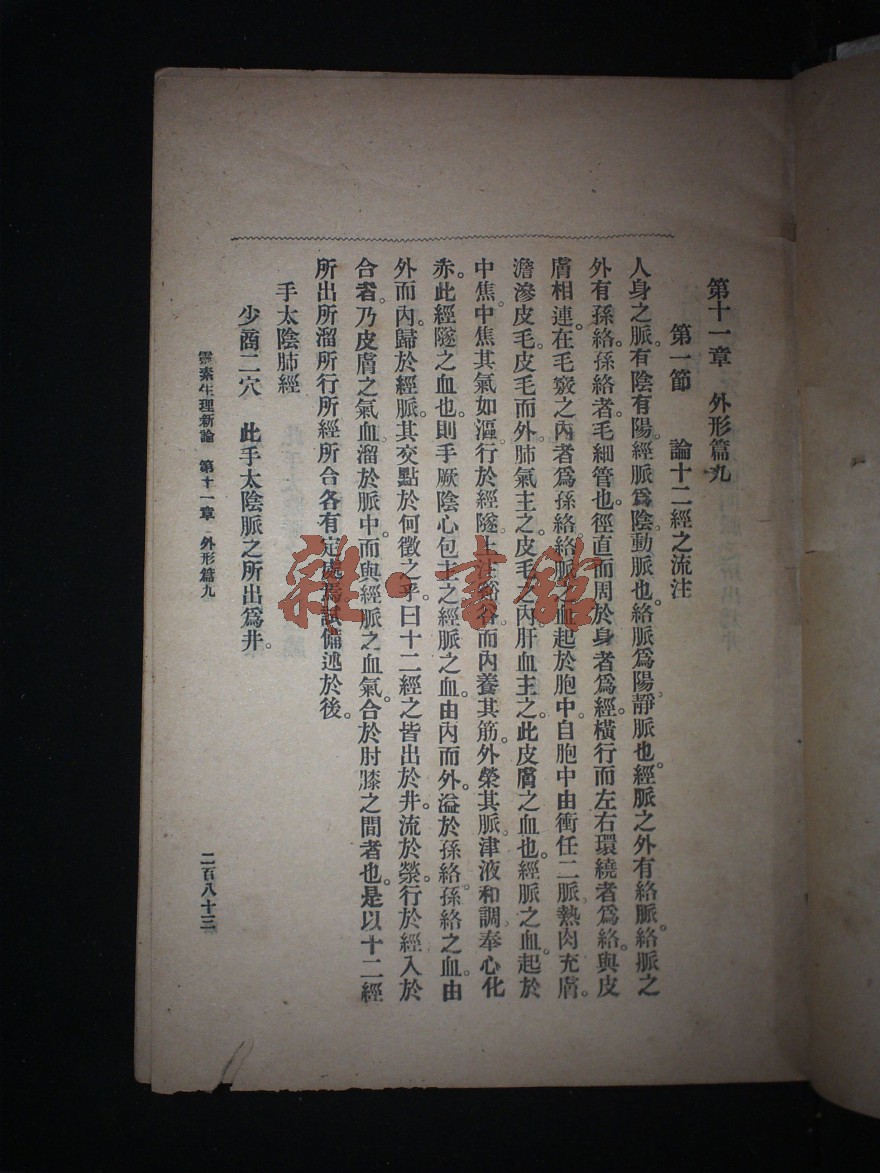 第十一章　外形篇九
第一節　論十二經之流注
人身之脈。有陰有陽。經脈爲陰。動脈也。絡脈爲陽。靜脈也。經脈之外有絡脈。絡脈之
外有孫絡。孫絡者。毛細管也。徑直而周於身者爲經。橫行而左右環繞者爲絡。與皮
膚相連。在毛竅之內者爲孫絡。絡脈之血。起於胞中。自胞中由衝任二脈。熱肉充膚。
澹滲皮毛。皮毛而外。肺氣主之。皮毛之內。肝血主之。此皮膚之血也。經脈之血。起於
中焦。中焦其氣如漚。行於經隧。上注谿谷。而內養其筋。外榮其脈。津液和調。奉心化
赤。此經隧之血也。則手厥陰心包主之。經脈之血。由內而外。溢於孫絡。孫絡之血。由
外而內。歸於經脈。其交點於何徵之乎。曰十二經之皆出於井。流於滎。行於經。入於
合者。乃皮膚之氣血。溜於脈中。而與經脈之血氣。合於肘膝之間者也。是以十二經
所出所溜所行所經所合各有定處。焉試備述於後。
手太陰肺經
少商二穴　此手太陰脈之所出爲井。
靈素生理新論　第十一章　外形篇九
二百八十三
雜·書館